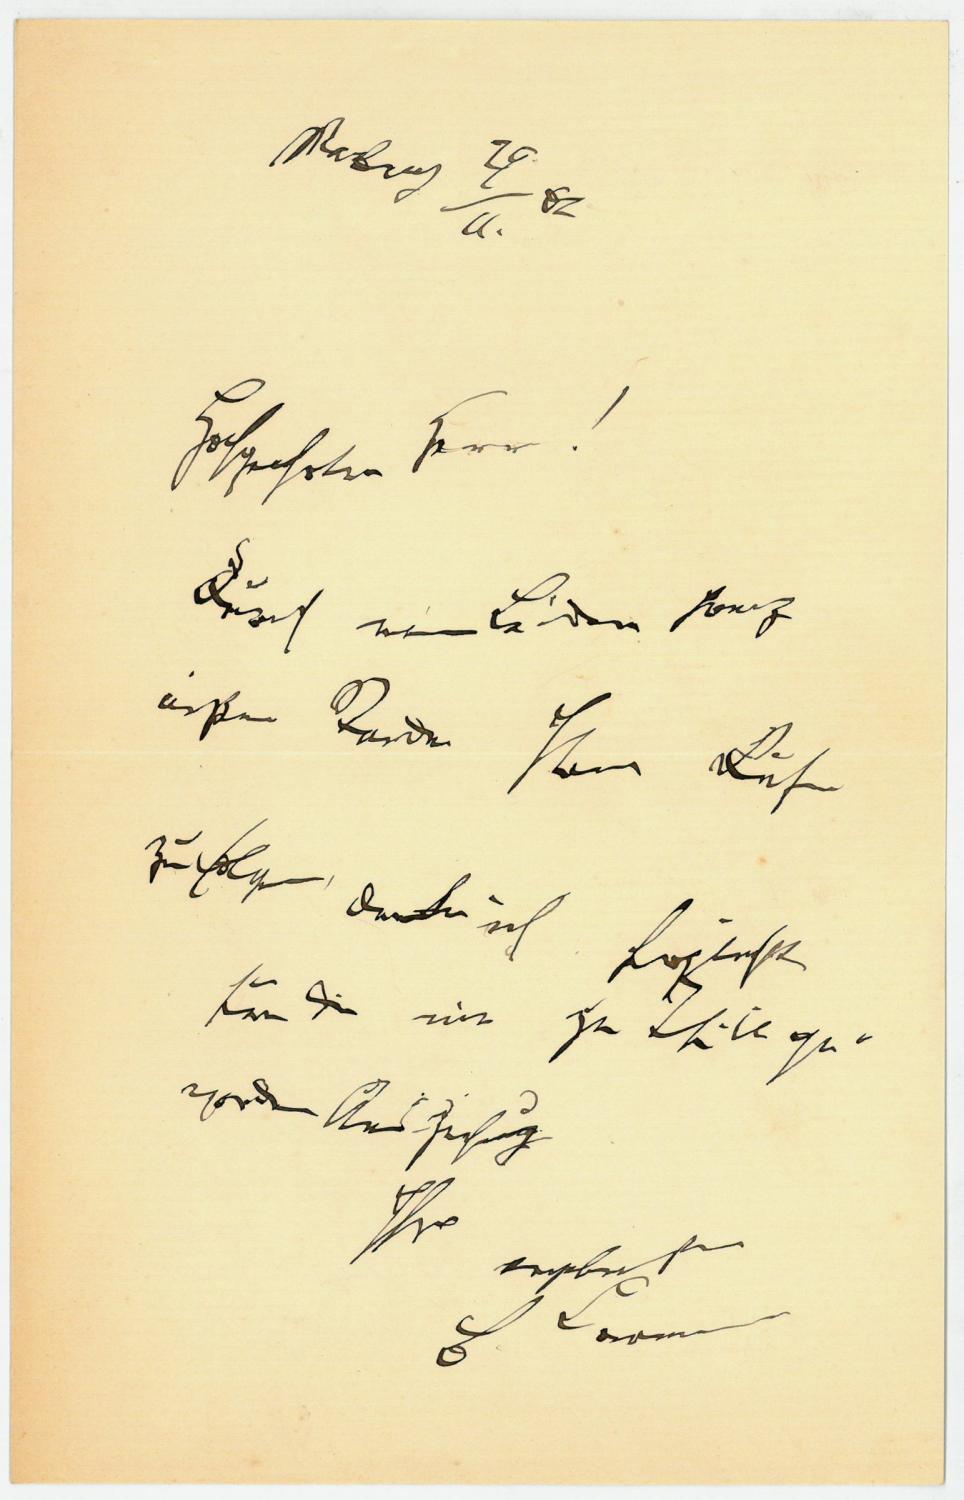 Marburg 29/11. 82
Hochgeehrter Herr!
Durch mein Leiden
außer Stande Ihrem Rufe
zu folgen, danke ich
für die mir zu Theil ge-
wordene Auszeichnung
Ihr
ergebenster